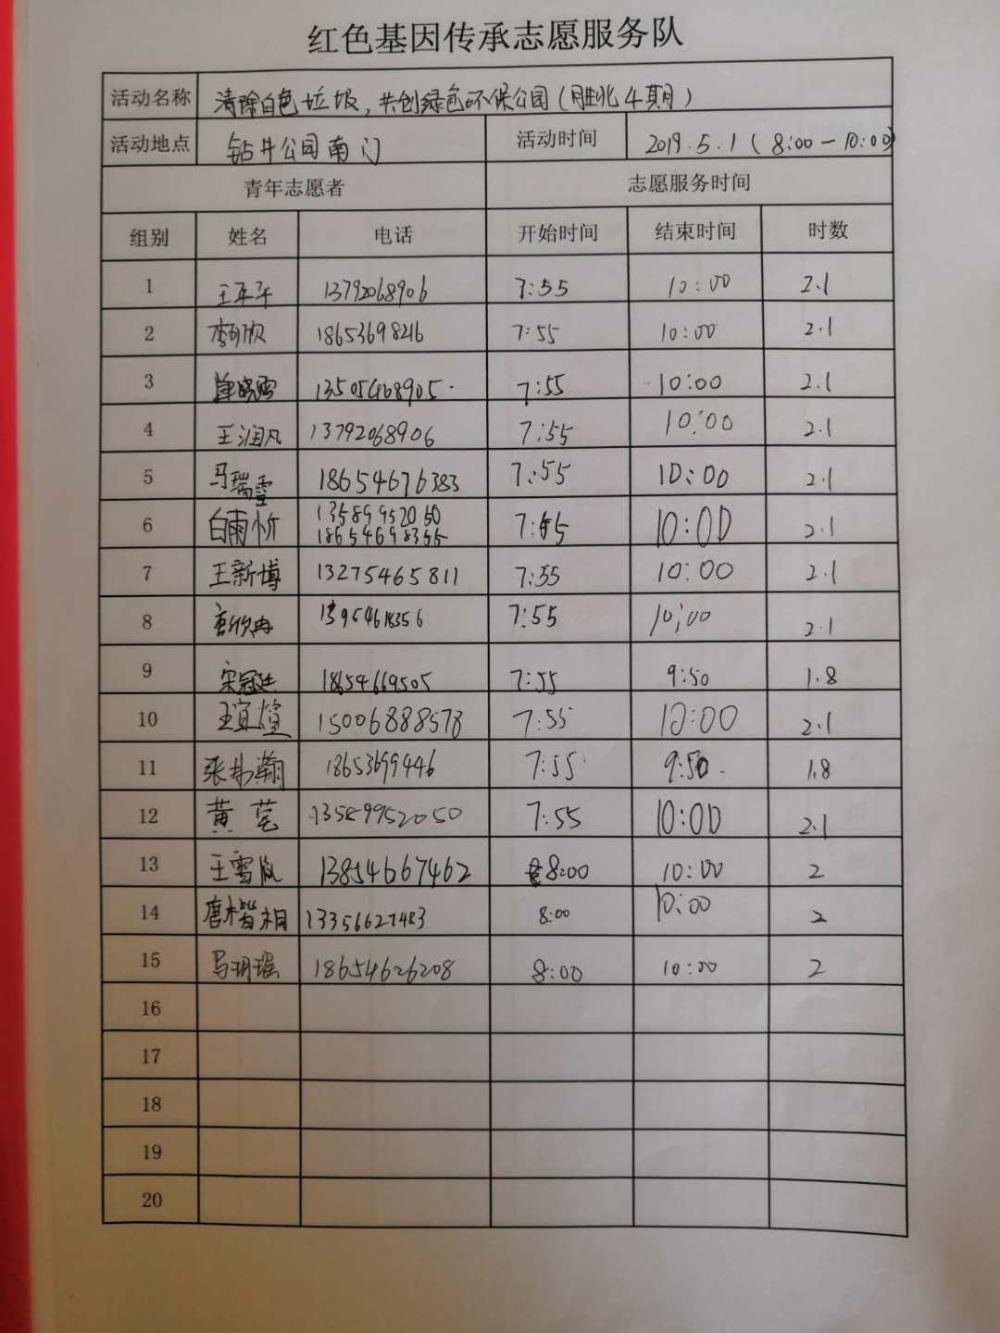 红色基因传承志愿服务队
活动名称 清除白色垃圾,共创绿色环保公园(胜北4期)
活动地点 钻井公园南门 活动时间 2019.5.1(8:00-10:00)
青年志愿者 志愿服务时间
组别 姓名 电话 开始时间 结束时间 时数
1 13792068906 7:55 10:00 2.1
2 李欣 18653698246 7:55 10:00 2.1
3 13505468905 7:55 10:00 2.1
4 王润凡 13792068906 7:55 10:00 2.1
5 马瑞雪 18654676383 7:55 10:00 2.1
6 白雨忻 13589952050 7:55 10:00 2.1
18654698355
7 王新博 13275465811 7:55 10:00 2.1
8 唐欣冉 7:55 10:00 2.1
9 18654669505 7:55 9:50 1.8
10 王宜萱 15006888578 7:55 10:00 2.1
11 18653699446 7:55 9:50 1.8
12 黄莹 13589952050 7:55 10:00 2.1
13 13854667462 8:00 10:00 2
14 唐楷相 13356627483 8:00 10:00 2
15 马玥瑶 18654626208 8:00 10:00 2
16
17
18
19
20